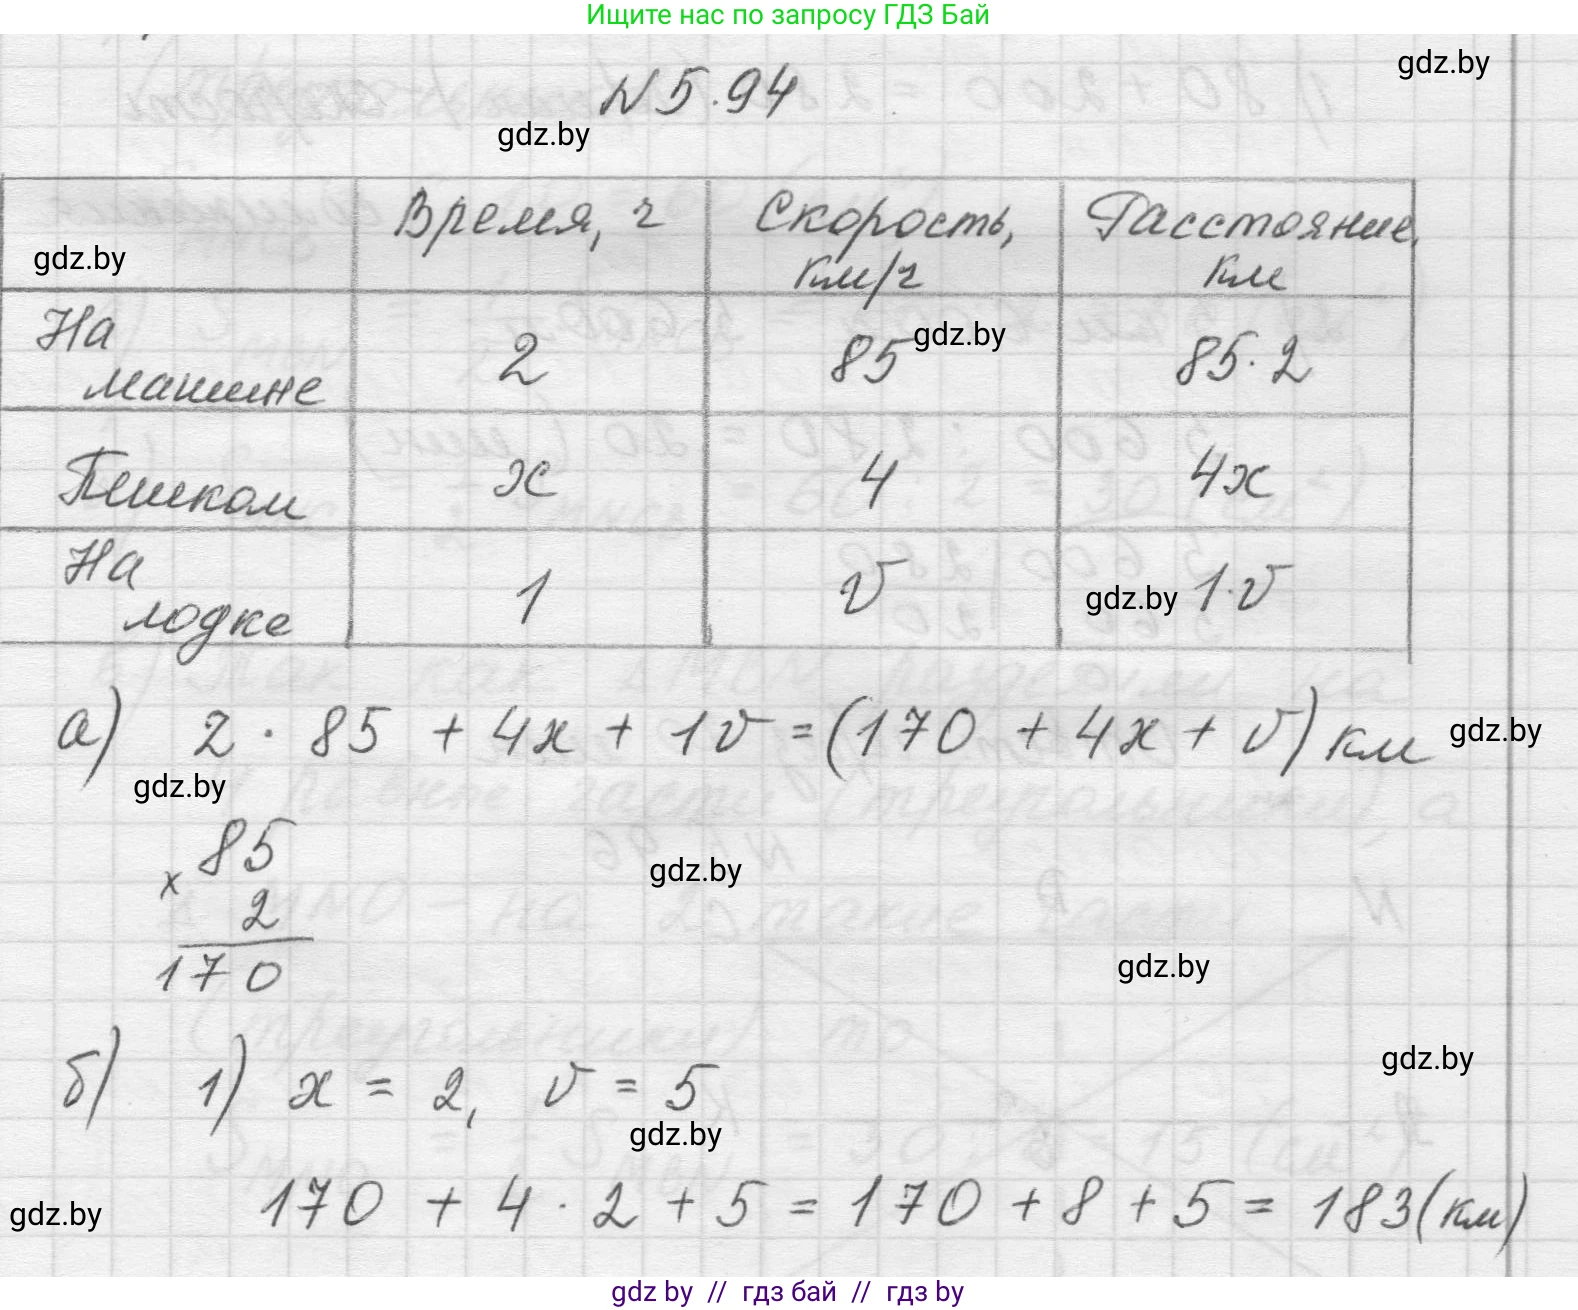 Ищите нас по запросу ГДЗ Бай
gdz.by
N 5.94
gdz.by
Время, ч Скорость, км/ч Расстояние, км
gdz.by
На машине 2 85 85·2
gdz.by
Пешком x 4 4x
На лодке 1 v 1·v
gdz.by
а) 2 · 85 + 4x + 1v = (170 + 4x + v) км
gdz.by
gdz.by
85
x
2
170
gdz.by
gdz.by
gdz.by
б) 1) x = 2, v = 5
gdz.by
170 + 4 · 2 + 5 = 170 + 8 + 5 = 183 (км)
gdz.by
gdz by // гдз бай // гдз by